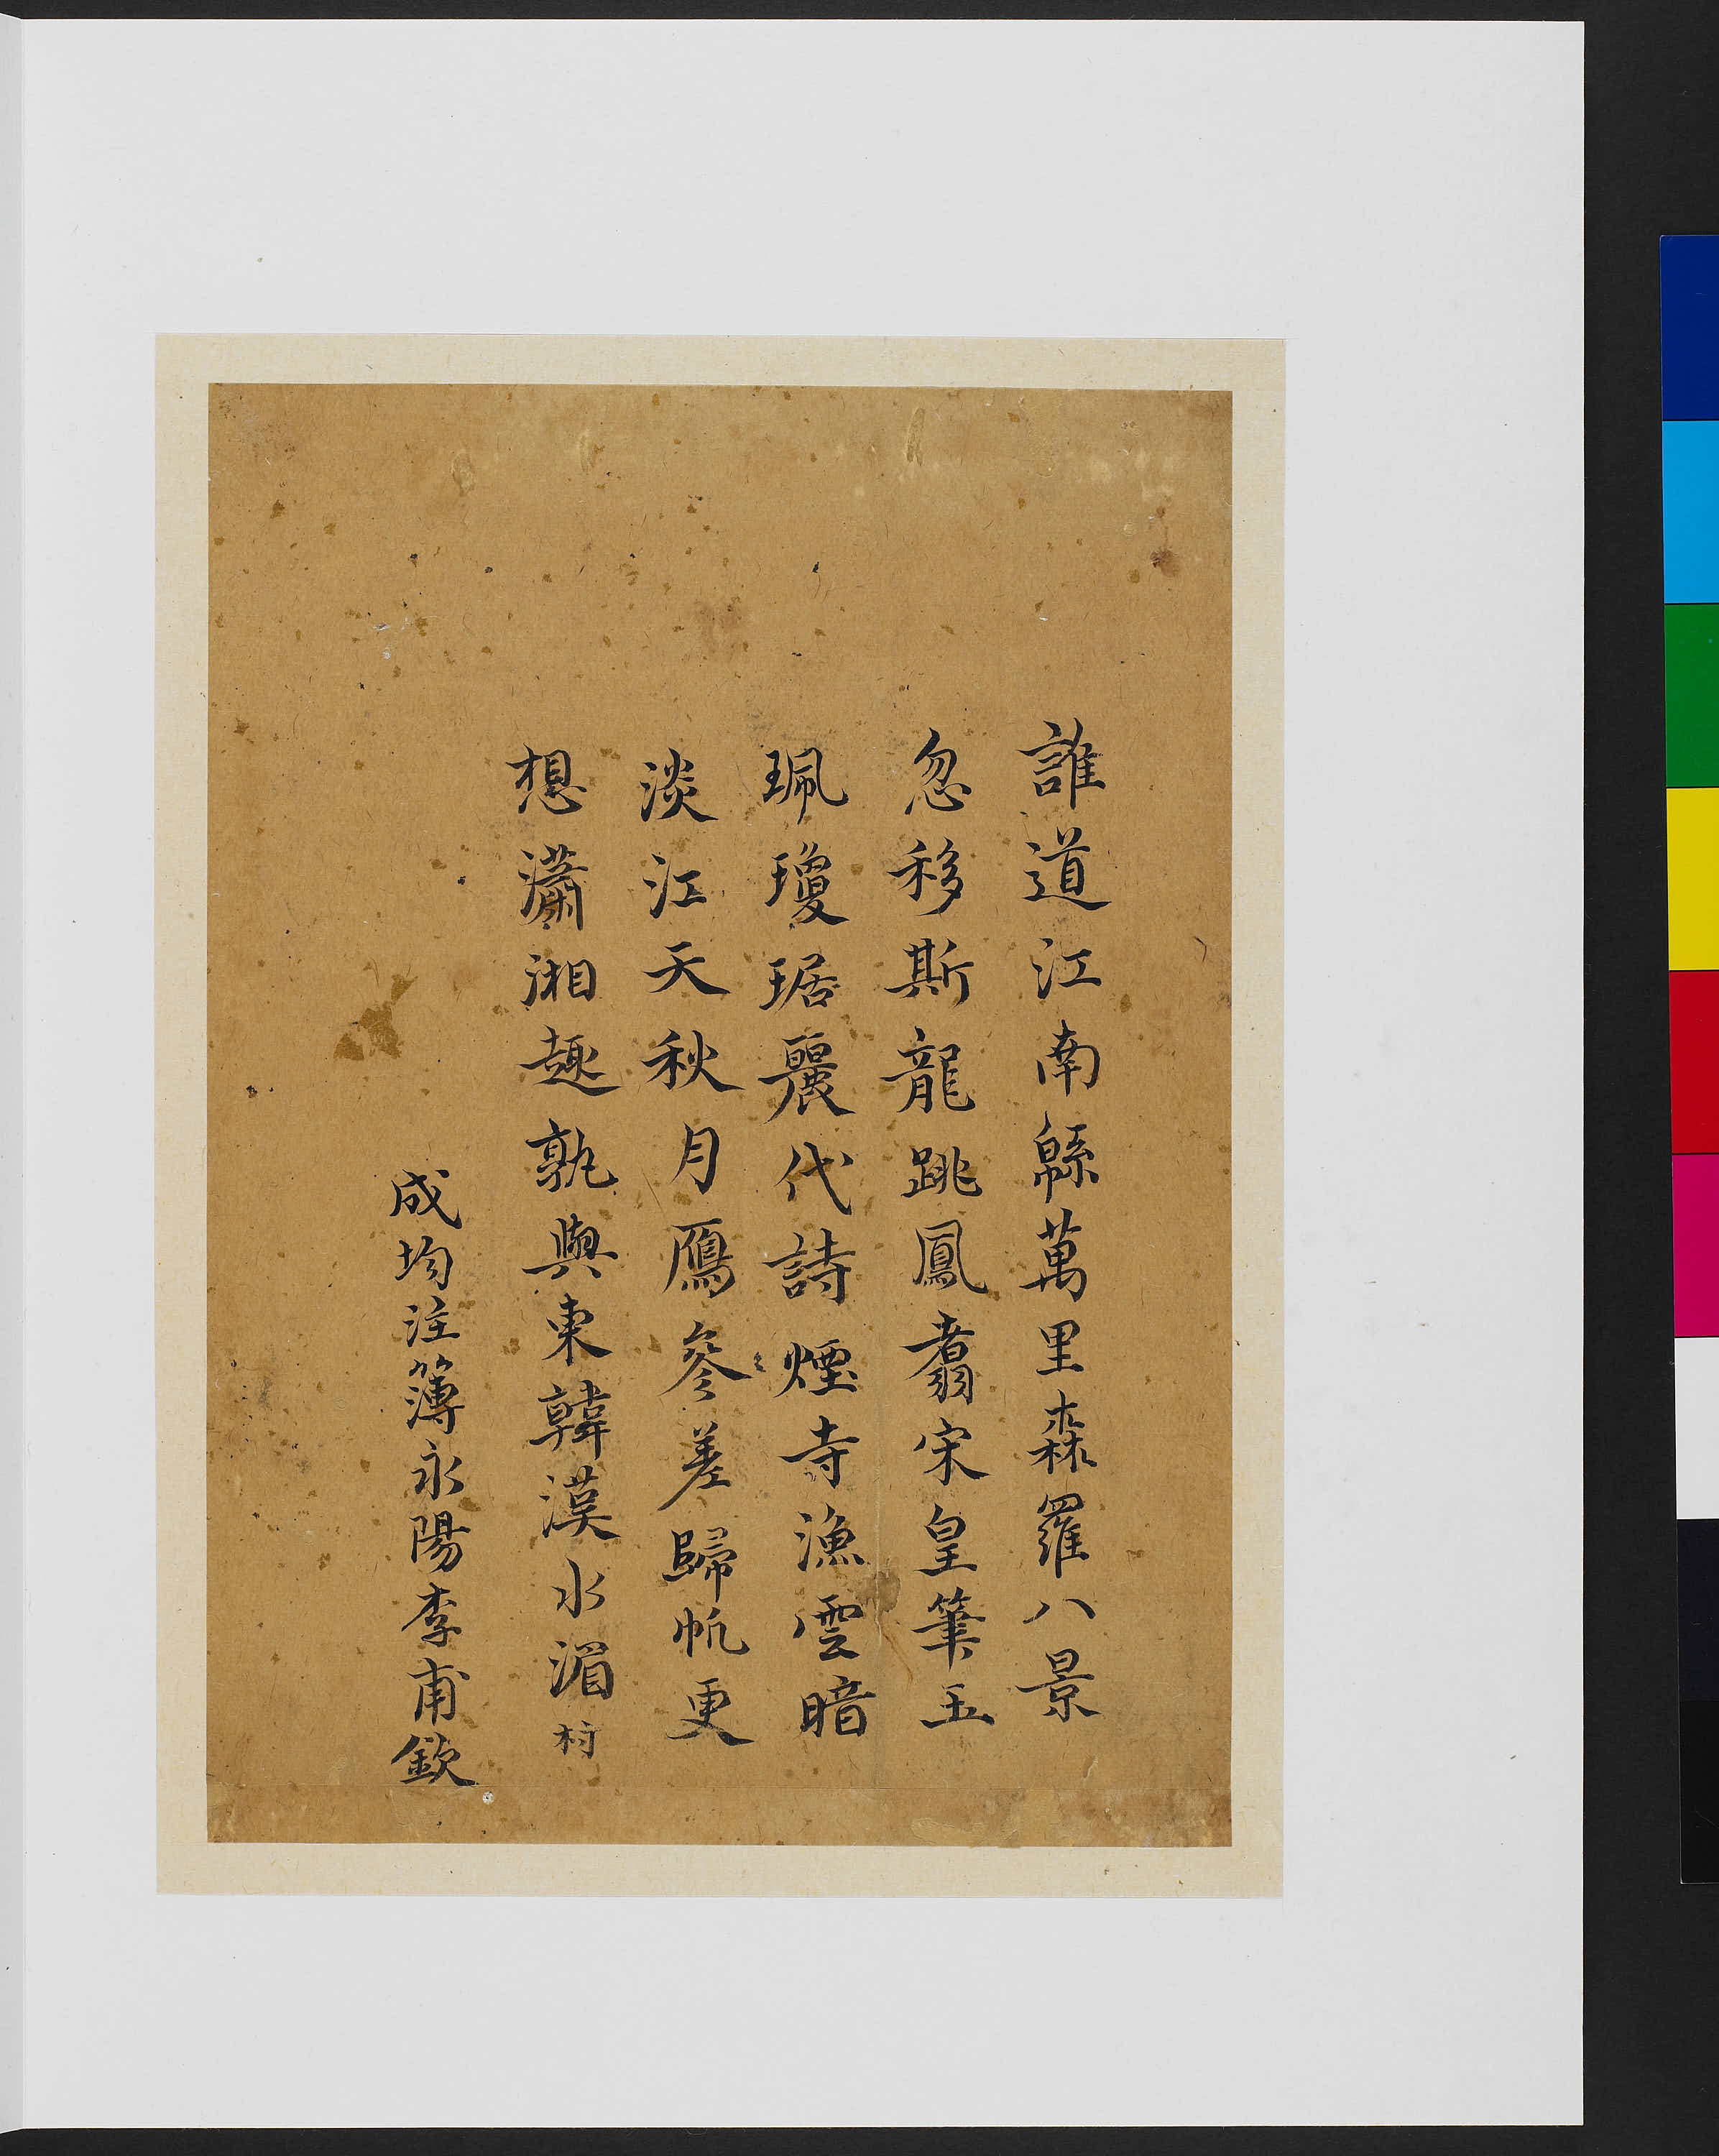 誰道江南緜萬里森羅八景
忽移斯龍跳鳳翥宋皇筆玉
珮瓊琚麗代詩煙寺漁雲暗
淡江天秋月鴈參差歸帆更
想瀟湘趣孰與東韓漢水湄 村
成均注簿永陽李甫欽